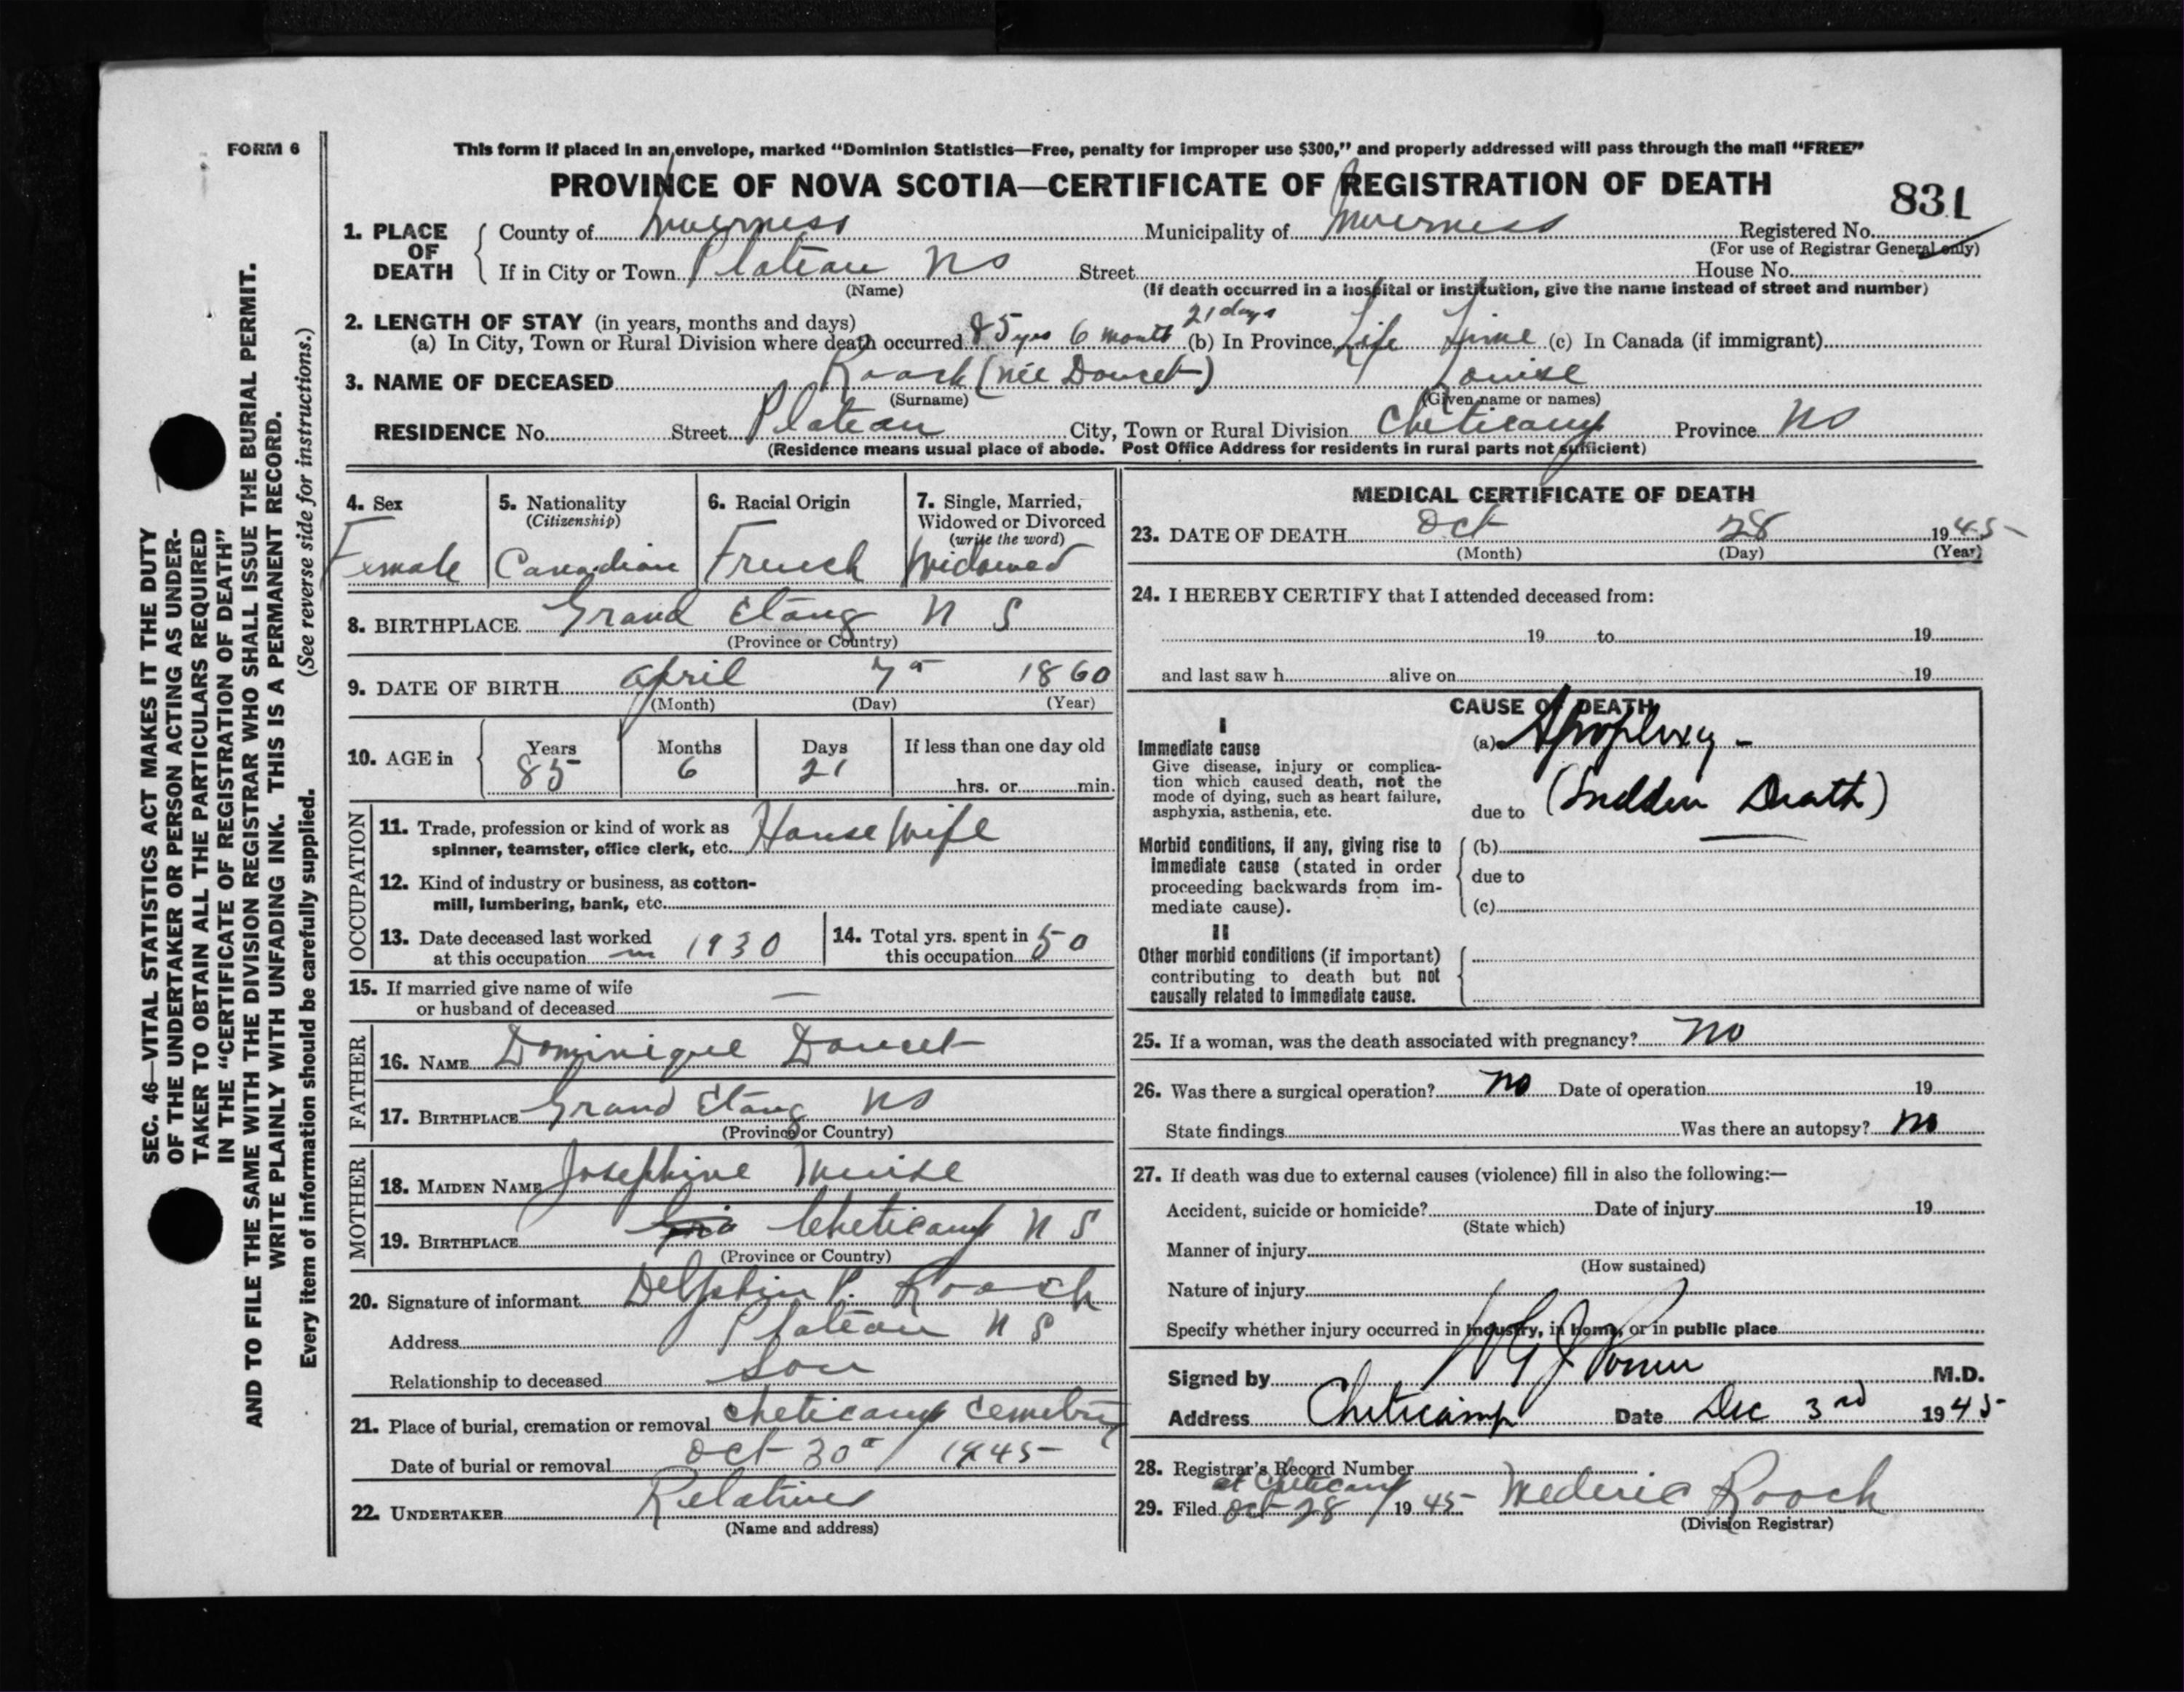 FORM 6
This form if placed in an envelope, marked “Dominion Statistics—Free, penalty for improper use $300,” and properly addressed will pass through the mail “FREE”
PROVINCE OF NOVA SCOTIA—CERTIFICATE OF REGISTRATION OF DEATH
831
1. PLACE OF DEATH
County of Inverness Municipality of Inverness Registered No.
(For use of Registrar General only)
If in City or Town Plateau NS Street House No.
(Name) (If death occurred in a hospital or institution, give the name instead of street and number)
2. LENGTH OF STAY (in years, months and days)
21 days
(a) In City, Town or Rural Division where death occurred 85 yrs 6 month (b) In Province Life Time (c) In Canada (if immigrant)
3. NAME OF DECEASED Roach (née Doucet) Louise
(Surname) (Given name or names)
RESIDENCE No. Street Plateau City, Town or Rural Division Cheticamp Province NS
(Residence means usual place of abode. Post Office Address for residents in rural parts not sufficient)
4. Sex
Female
5. Nationality
(Citizenship)
Canadian
6. Racial Origin
French
7. Single, Married,
Widowed or Divorced
(write the word)
Widowed
8. BIRTHPLACE Grand Etang N S
(Province or Country)
9. DATE OF BIRTH April 7 1860
(Month) (Day) (Year)
10. AGE in Years Months Days If less than one day old
85 6 21 hrs. or min.
OCCUPATION
11. Trade, profession or kind of work as
spinner, teamster, office clerk, etc. House Wife
12. Kind of industry or business, as cotton-
mill, lumbering, bank, etc.
13. Date deceased last worked
at this occupation in 1930
14. Total yrs. spent in
this occupation 50
15. If married give name of wife
or husband of deceased —
FATHER
16. NAME Dominique Doucet
17. BIRTHPLACE Grand Etang NS
(Province or Country)
MOTHER
18. MAIDEN NAME Josephine Muise
19. BIRTHPLACE Cheticamp N S
(Province or Country)
20. Signature of informant Delphin P. Roach
Address Plateau N S
Relationship to deceased Son
21. Place of burial, cremation or removal cheticamp cemetry
Date of burial or removal Oct 30 1945
22. UNDERTAKER Relatives
(Name and address)
MEDICAL CERTIFICATE OF DEATH
23. DATE OF DEATH Oct 28 1945
(Month) (Day) (Year)
24. I HEREBY CERTIFY that I attended deceased from:
19 to 19
and last saw h alive on 19
CAUSE OF DEATH
I
Immediate cause
Give disease, injury or complica-
tion which caused death, not the
mode of dying, such as heart failure,
asphyxia, asthenia, etc.
(a) Apoplexy -
due to (Sudden Death)
Morbid conditions, if any, giving rise to
immediate cause (stated in order
proceeding backwards from im-
mediate cause).
(b)
due to
(c)
II
Other morbid conditions (if important)
contributing to death but not
causally related to immediate cause.
25. If a woman, was the death associated with pregnancy? No
26. Was there a surgical operation? No Date of operation 19
State findings Was there an autopsy? No
27. If death was due to external causes (violence) fill in also the following:—
Accident, suicide or homicide? Date of injury 19
(State which)
Manner of injury
(How sustained)
Nature of injury
Specify whether injury occurred in industry, in home, or in public place
Signed by M.D.
Address Cheticamp Date Dec 3rd 1945
28. Registrar's Record Number
at Cheticamp
29. Filed Oct 28 1945 Mederic Roach
(Division Registrar)
SEC. 46—VITAL STATISTICS ACT MAKES IT THE DUTY
OF THE UNDERTAKER OR PERSON ACTING AS UNDER-
TAKER TO OBTAIN ALL THE PARTICULARS REQUIRED
IN THE “CERTIFICATE OF REGISTRATION OF DEATH”
AND TO FILE THE SAME WITH THE DIVISION REGISTRAR WHO SHALL ISSUE THE BURIAL PERMIT.
WRITE PLAINLY WITH UNFADING INK. THIS IS A PERMANENT RECORD.
Every item of information should be carefully supplied. (See reverse side for instructions.)